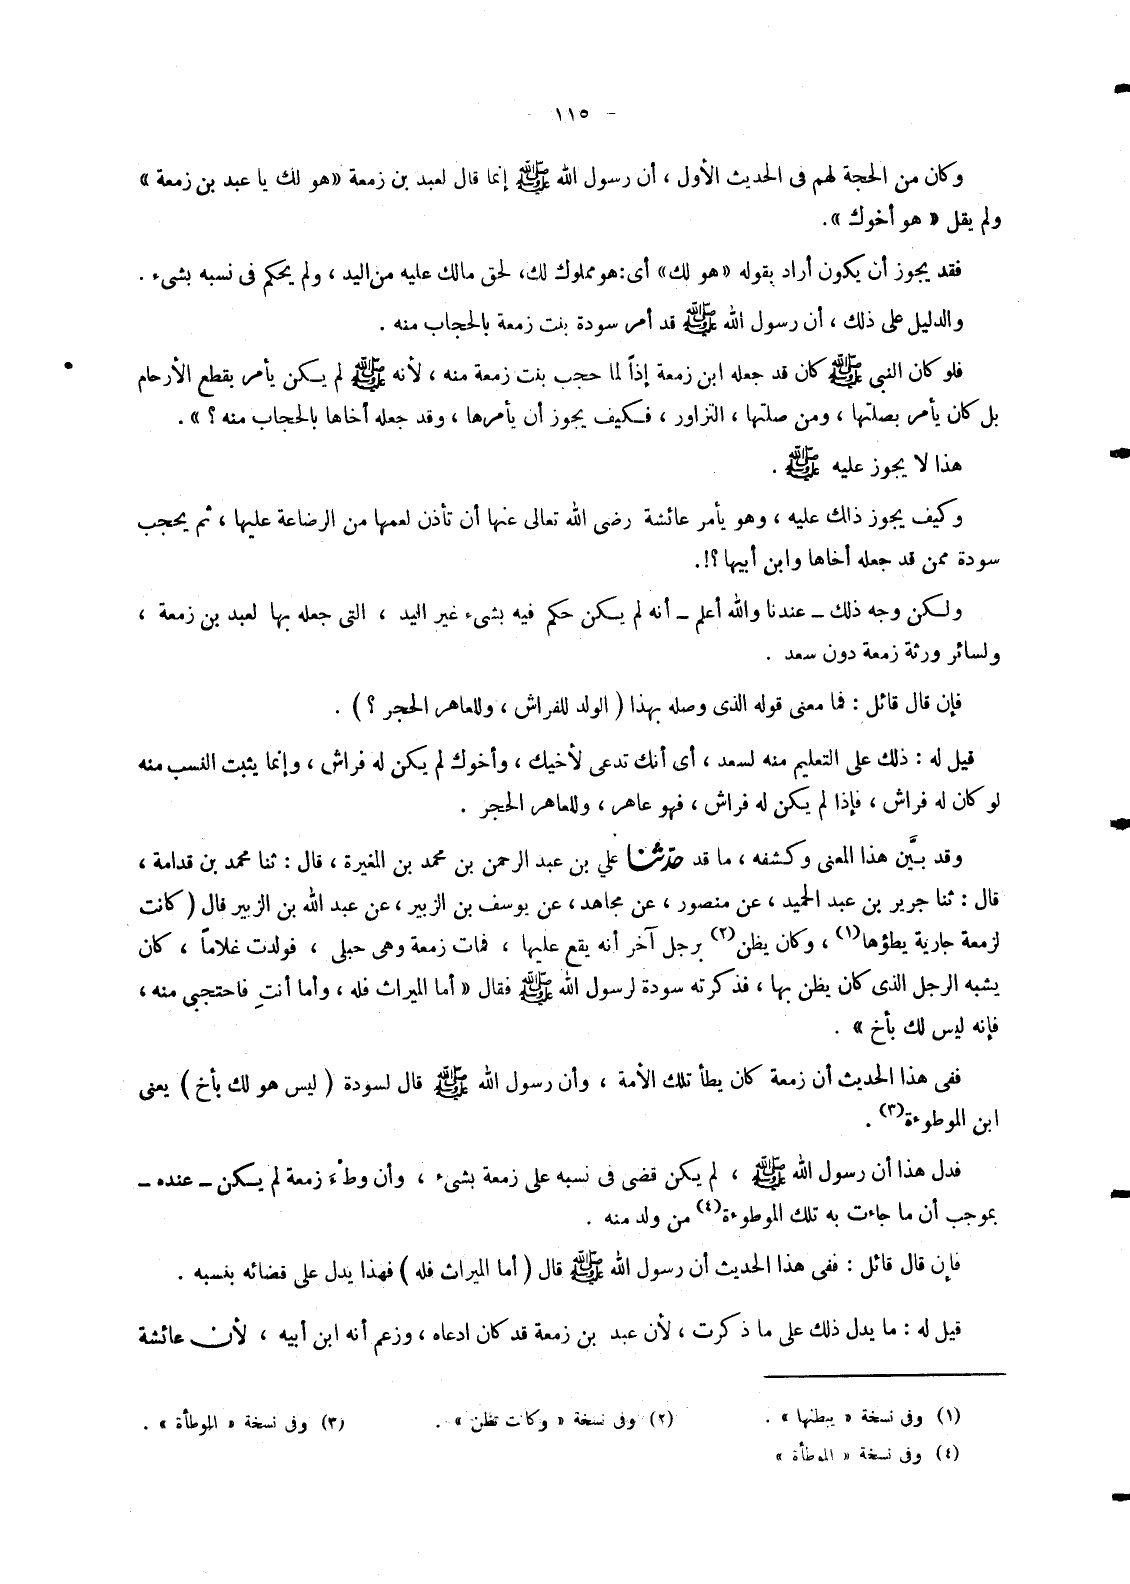 - ١١٥ -
وكان من الحجة لهم فى الحديث الأول ، أن رسول الله ﷺ إنما قال لعبد بن زمعة «هو لك يا عبد بن زمعة »
ولم يقل « هو أخوك ».
فقد يجوز أن يكون أراد بقوله «هو لك» أى: هو مملوك لك، لحق مالك عليه من اليد ، ولم يحكم فى نسبه بشىء .
والدليل على ذلك ، أن رسول الله ﷺ قد أمر سودة بنت زمعة بالحجاب منه .
فلو كان النبى ﷺ كان قد جعله ابن زمعة إذاً لما حجب بنت زمعة منه ، لأنه ﷺ لم يكن يأمر بقطع الأرحام
بل كان يأمر بصلتها ، ومن صلتها ، التزاور ، فكيف يجوز أن يأمرها ، وقد جعله أخاها بالحجاب منه ؟ ».
هذا لا يجوز عليه ﷺ .
وكيف يجوز ذلك عليه ، وهو يأمر عائشة رضى الله تعالى عنها أن تأذن لعمها من الرضاعة عليها ، ثم يحجب
سودة ممن قد جعله أخاها وابن أبيها ؟!.
ولكن وجه ذلك ــ عندنا والله أعلم ــ أنه لم يكن حكم فيه بشىء غير اليد ، التى جعله بها لعبد بن زمعة ،
ولسائر ورثة زمعة دون سعد .
فإن قال قائل : فما معنى قوله الذى وصله بهذا ( الولد للفراش ، وللعاهر الحجر ؟ ) .
قيل له : ذلك على التعليم منه لسعد ، أى أنك تدعى لأخيك ، وأخوك لم يكن له فراش ، وإنما يثبت النسب منه
لو كان له فراش ، فإذا لم يكن له فراش ، فهو عاهر ، وللعاهر الحجر .
وقد بيَّن هذا المعنى وكشفه ، ما قد حدثنا علي بن عبد الرحمن بن محمد بن المغيرة ، قال : ثنا محمد بن قدامة ،
قال : ثنا جرير بن عبد الحميد ، عن منصور ، عن مجاهد ، عن يوسف بن الزبير ، عن عبد الله بن الزبير قال ( كانت
لزمعة جارية يطؤها(١) ، وكان يظن(٢) برجل آخر أنه يقع عليها ، فمات زمعة وهى حبلى ، فولدت غلاماً ، كان
يشبه الرجل الذى كان يظن بها ، فذكرته سودة لرسول الله ﷺ فقال « أما الميراث فله ، وأما أنتِ فاحتجبى منه ،
فإنه ليس لك بأخ » .
ففى هذا الحديث أن زمعة كان يطأ تلك الأمة ، وأن رسول الله ﷺ قال لسودة ( ليس هو لك بأخ ) يعنى
ابن الموطوءة(٣) .
فدل هذا أن رسول الله ﷺ ، لم يكن قضى فى نسبه على زمعة بشىء ، وأن وطْءَ زمعة لم يكن ــ عنده ــ
بموجب أن ما جاءت به تلك الموطوءة(٤) من ولد منه .
فإن قال قائل : ففى هذا الحديث أن رسول الله ﷺ قال ( أما الميراث فله ) فهذا يدل على قضائه بنسبه .
قيل له : ما يدل ذلك على ما ذكرت ، لأن عبد بن زمعة قد كان ادعاه ، وزعم أنه ابن أبيه ، لأن عائشة
(١) وفى نسخة « يبطنها » . (٢) وفى نسخة « وكانت تظن » . (٣) وفى نسخة « الموطأة » .
(٤) وفى نسخة « الموطأة »